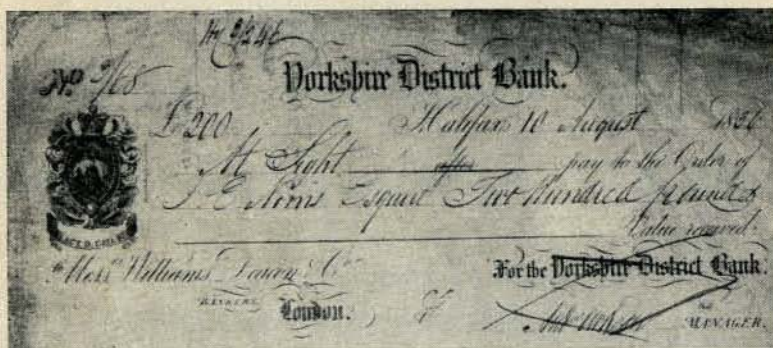 No 9/68
Yorkshire District Bank.
£200 Halifax 10 August 18
At Sight after pay to the Order of
J E Norris Esquire Two Hundred pounds
Value received.
Messrs Williams Deacon & Co
BANKERS
London.
For the Yorkshire District Bank.
MANAGER.